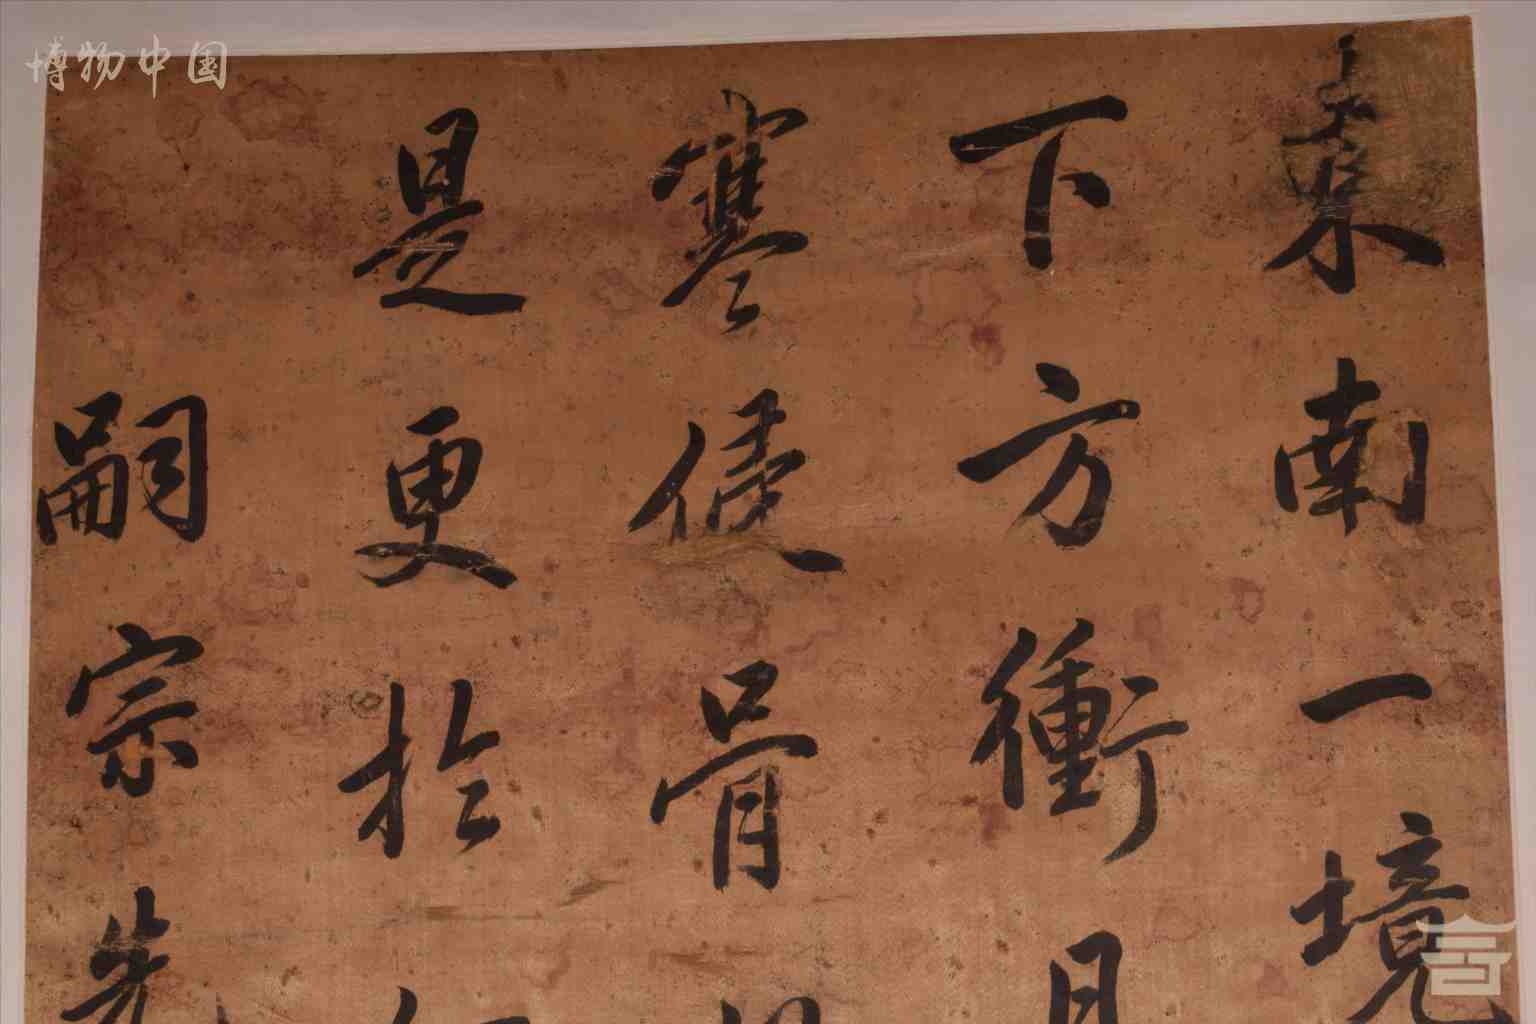 博物中国
東南一境
下方衝月
寒侵骨
是更於
嗣宗先